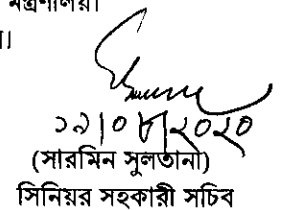 মন্ত্রণালয়।
১৯|০৮|২০২০
(সারমিন সুলতানা)
সিনিয়র সহকারী সচিব